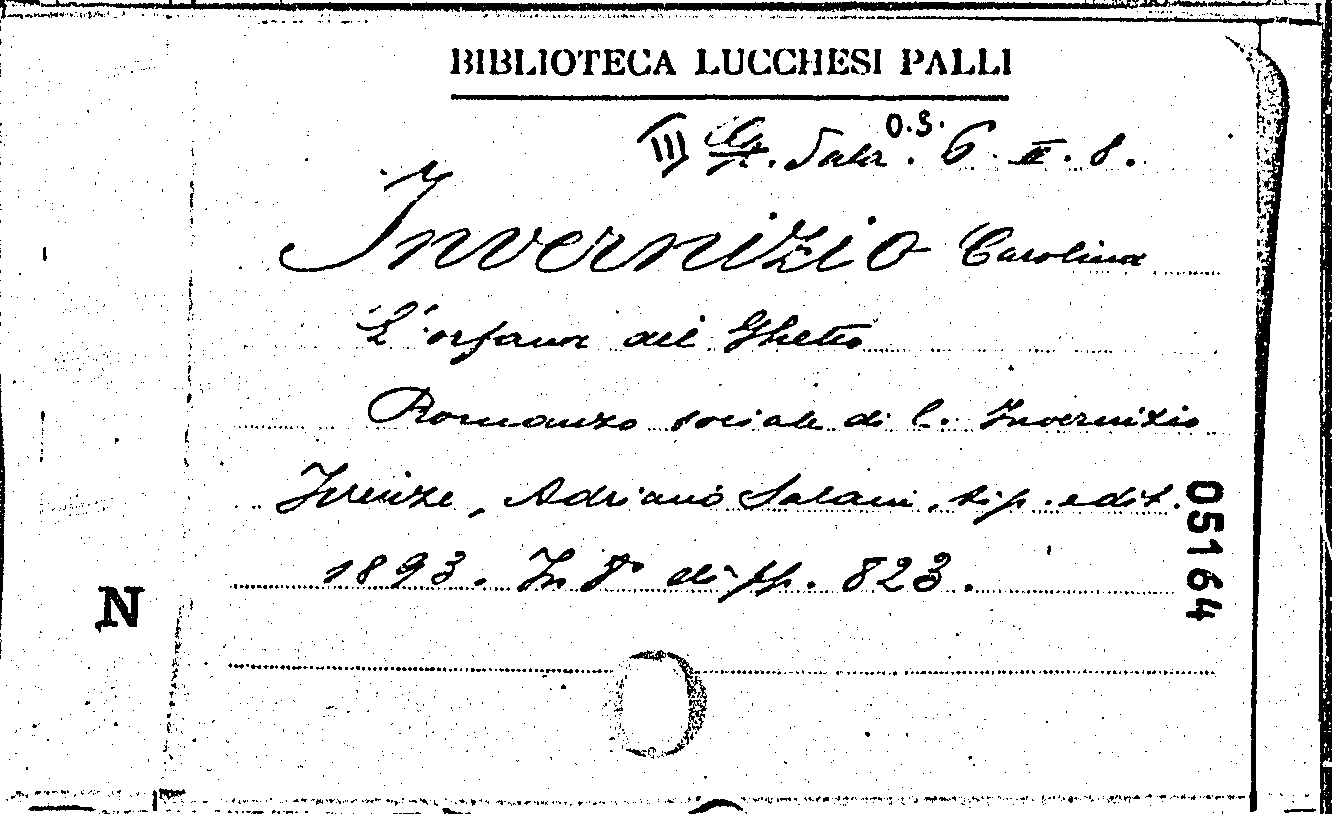 BIBLIOTECA LUCCHESI PALLI
III Sala O.S. 6. II. 8.
Invernizio Carolina
L'orfana del Ghetto
Romanzo sociale di C. Invernizio
Firenze, Adriano Salani, tip. edit.
1893. In 8° di pp. 823.
05164
N